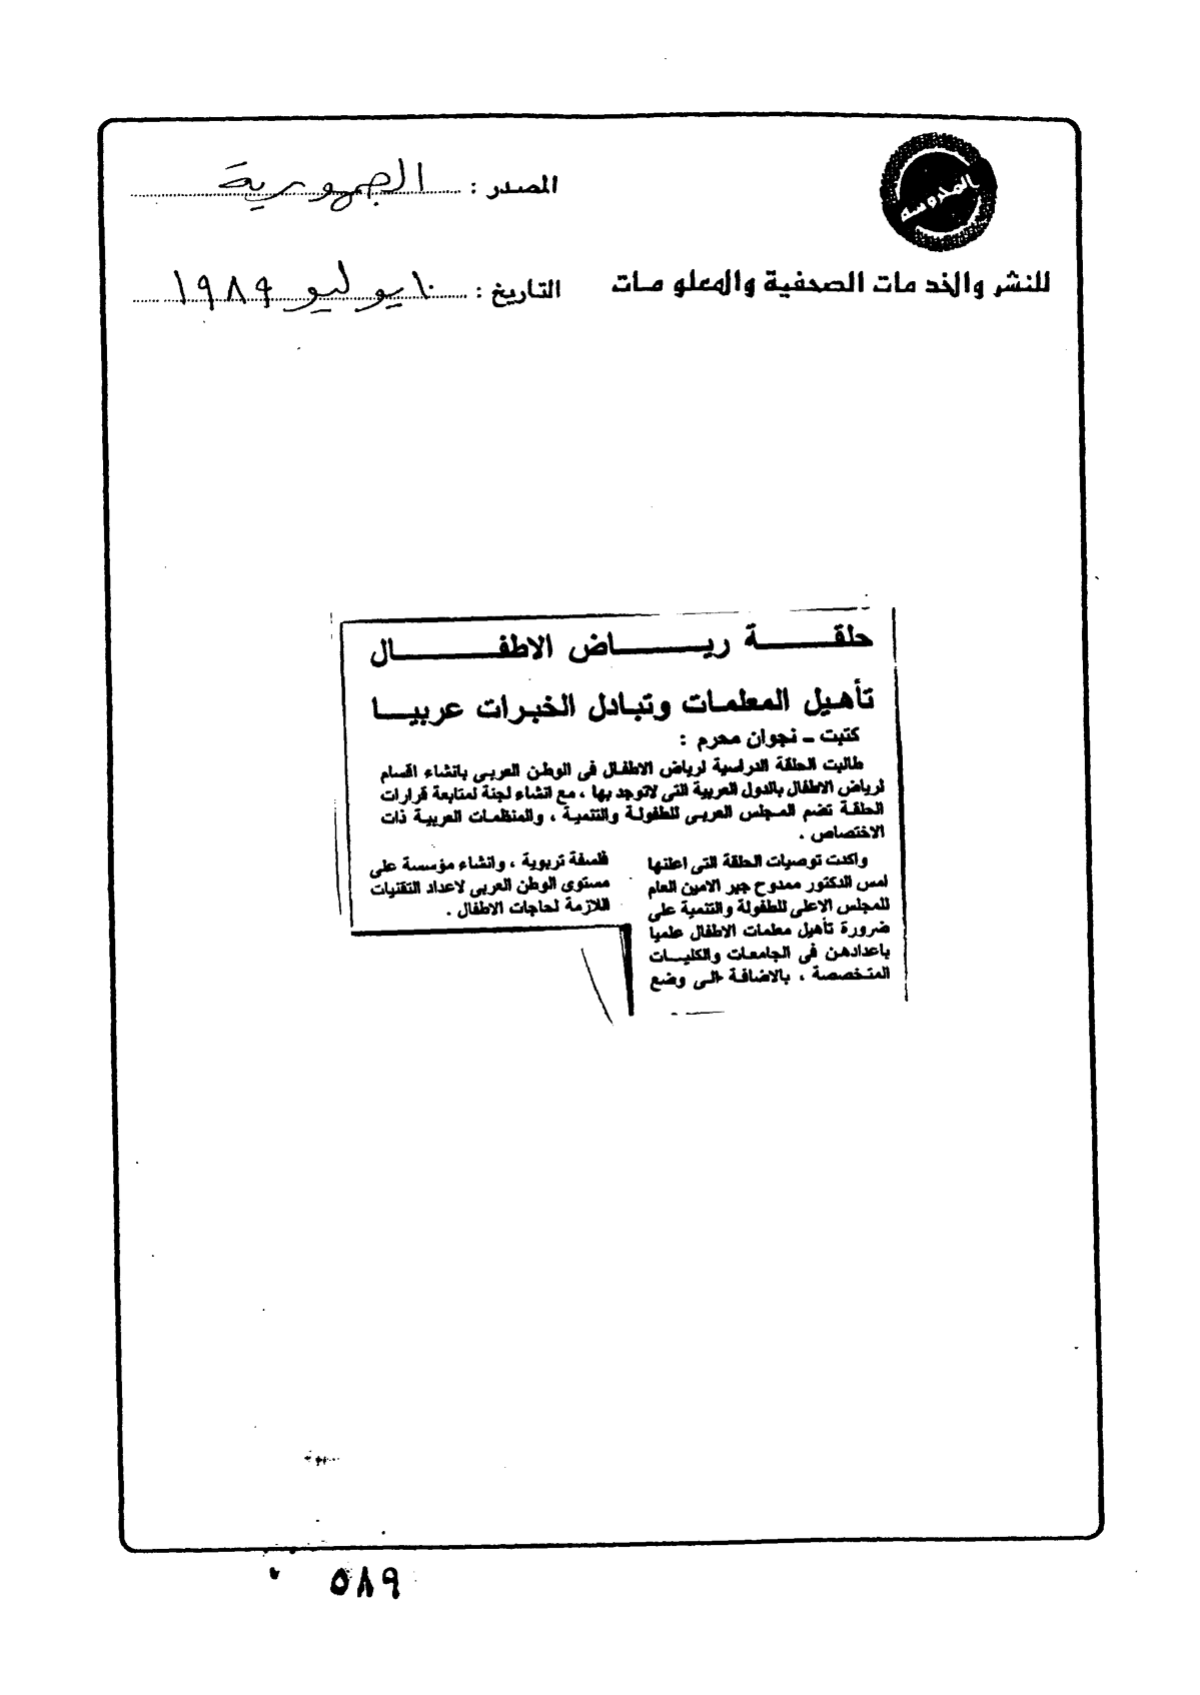 المحروسه
للنشر والخدمات الصحفية والمعلومات
المصدر : الجمهورية
التاريخ : ١٠ يوليو ١٩٨٩
حلقة رياض الاطفال
تأهيل المعلمات وتبادل الخبرات عربيا
كتبت ـ نجوان محرم :
طالبت الحلقة الدراسية لرياض الاطفال فى الوطن العربى بانشاء اقسام
لرياض الاطفال بالدول العربية التى لاتوجد بها ، مع انشاء لجنة لمتابعة قرارات
الحلقة تضم المجلس العربى للطفولة والتنمية ، والمنظمات العربية ذات
الاختصاص .
واكدت توصيات الحلقة التى اعلنها
امس الدكتور ممدوح جبر الامين العام
للمجلس الاعلى للطفولة والتنمية على
ضرورة تأهيل معلمات الاطفال علميا
باعدادهن فى الجامعات والكليات
المتخصصة ، بالاضافة الى وضع
فلسفة تربوية ، وانشاء مؤسسة على
مستوى الوطن العربى لاعداد التقنيات
اللازمة لحاجات الاطفال .
٥٨٩